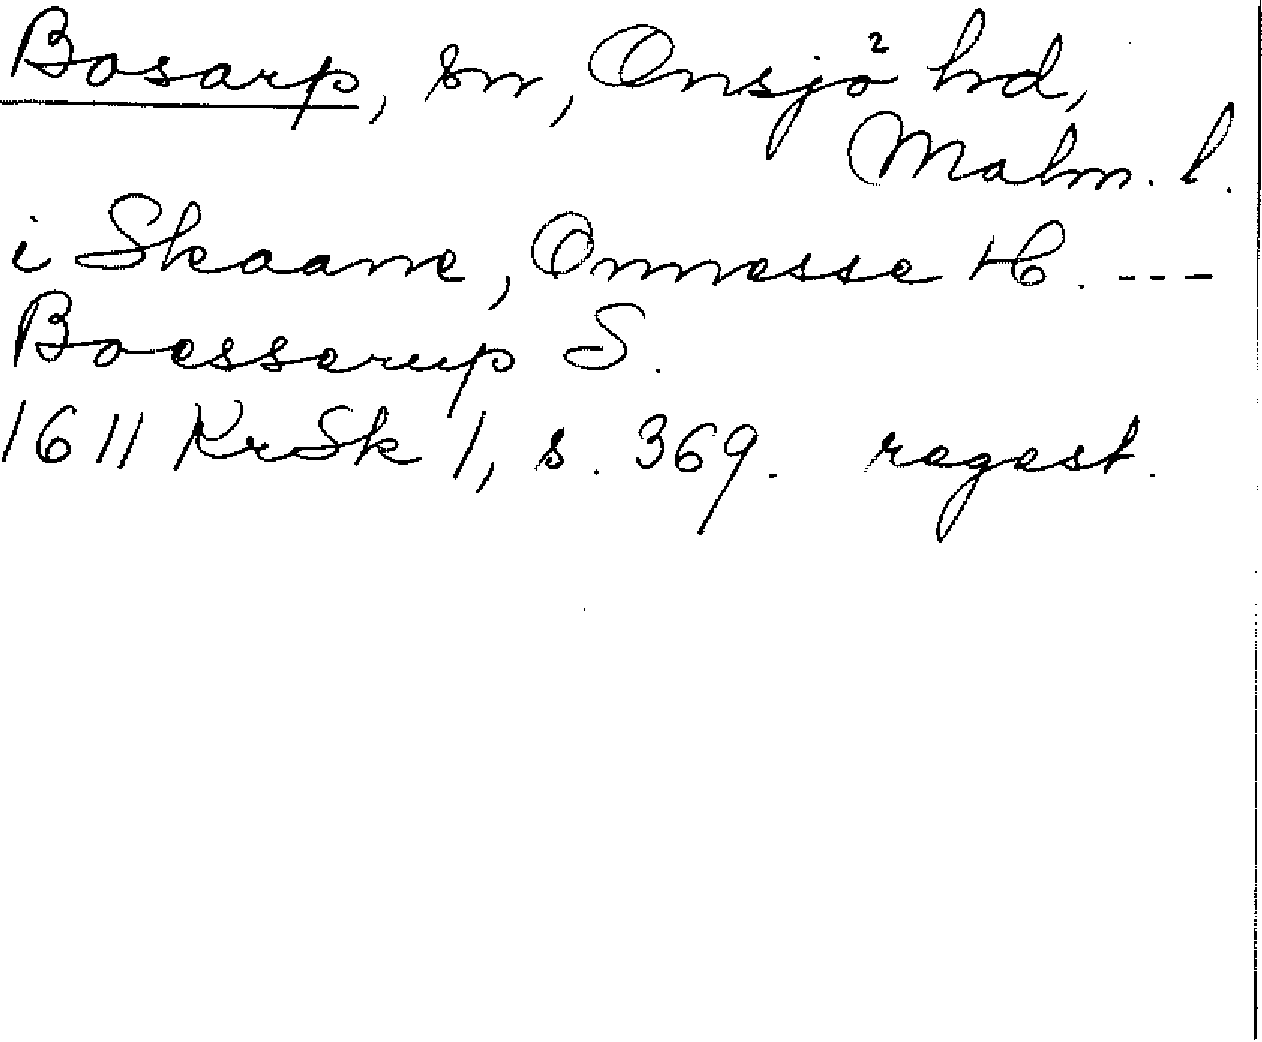 Bosarp, sn, Onsjö hd,
Malm. l.
i Skaane, Onnesse H. ---
Boesserup S.
1611 KrSk 1, s. 369. regest.